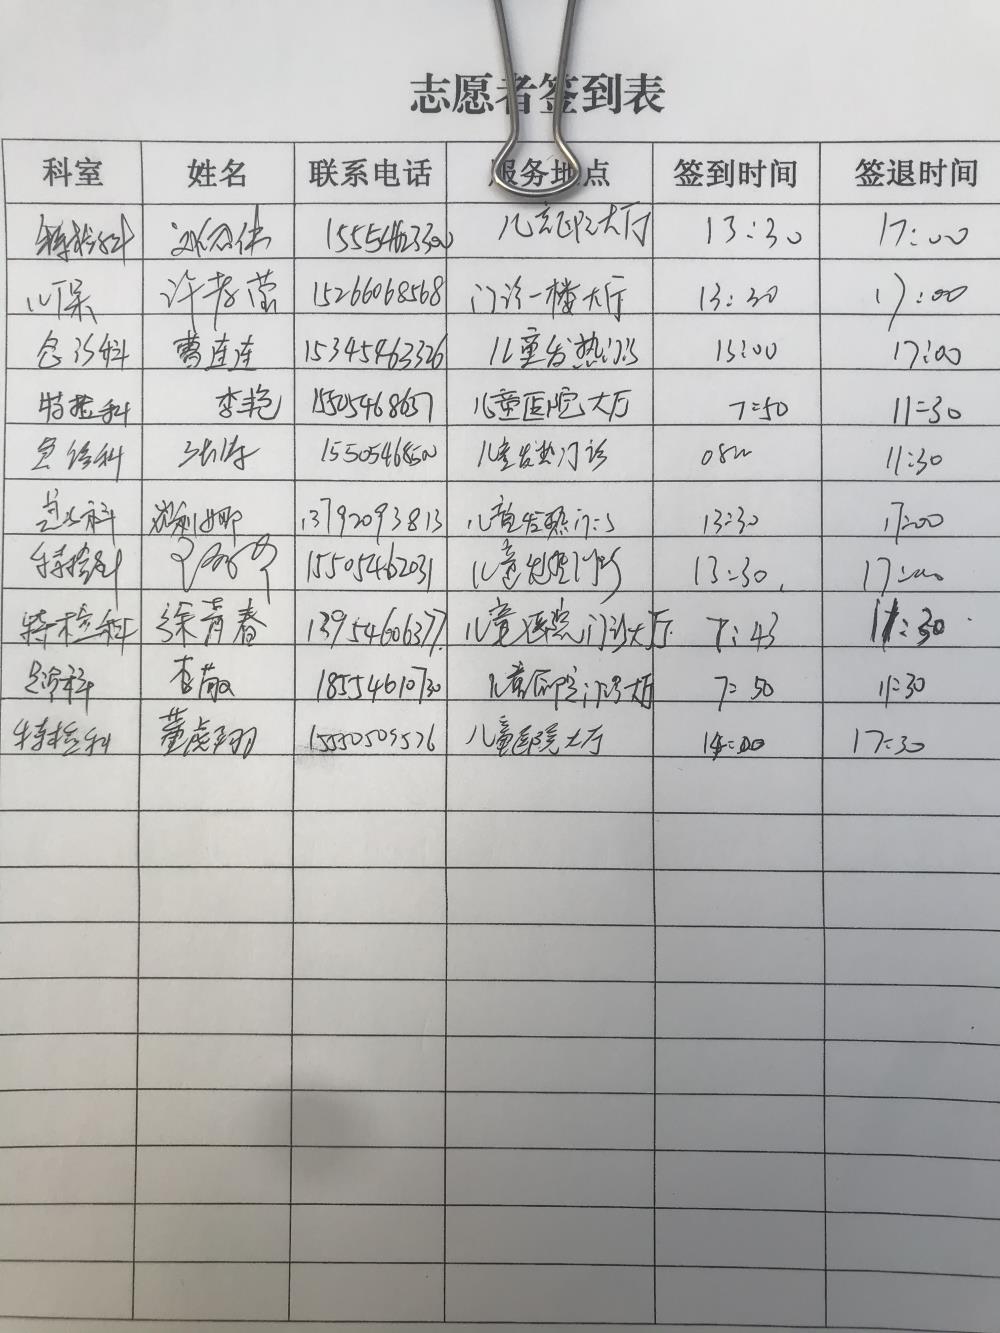 志愿者签到表
科室 姓名 联系电话 服务地点 签到时间 签退时间
特检科 儿童医院大厅 13:30 17:00
儿保 许孝莹 15266068568 门诊一楼大厅 13:30 17:00
急诊科 曹连连 15345463326 儿童发热门诊 13:00 17:00
特检科 李艳 15505468657 儿童医院大厅 7:50 11:30
急诊科 儿童发热门诊 11:30
急诊科 13792093813 儿童发热门诊 13:30 17:00
特检科 15505462031 儿童发热门诊 13:30 17:00
特检科 徐青春 13954606377 儿童医院门诊大厅 7:43 11:30
急诊科 李敬 18554610730 儿童医院门诊大厅 7:50 11:30
特检科 董虎翔 15550509576 儿童医院大厅 14:00 17:30